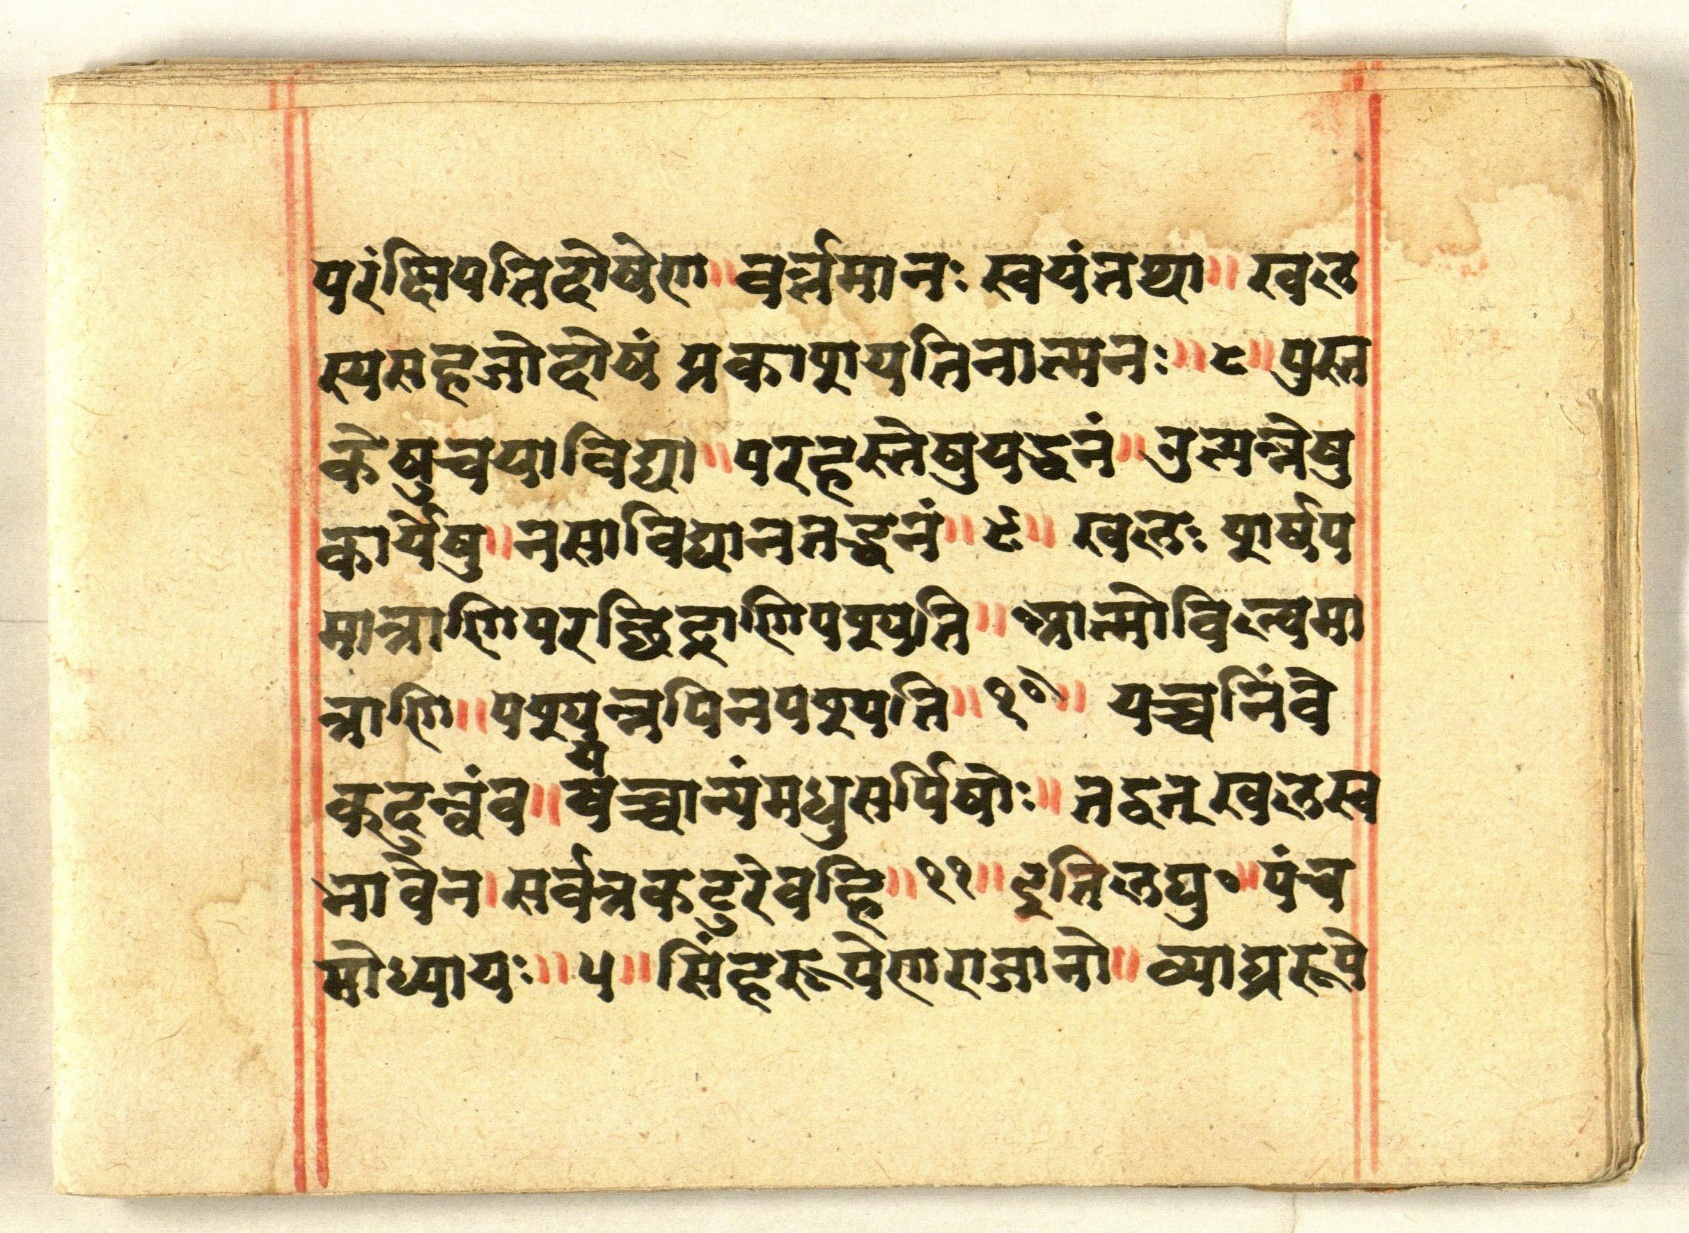 परंक्षिपतिदोषेण॥वर्त्तमानःस्वयंतथा॥खल
स्यसहजोदोषंप्रकाशयतिनात्मनः॥८॥पुस्त
केषुचयाविद्या॥परहस्तेषुयद्धनं॥उत्पन्नेषु
कार्येषु॥नसाविद्यानतद्धनं॥९॥खलःशर्षप
मात्राणिपरछिद्राणिपश्यति॥आत्मोविल्वमा
त्राणि॥पश्यन्नपिनपश्यति॥१०॥यच्चनिंवे
कुदन्त्वंव॥यच्चान्यंमधुसर्पिषोः॥तद्वत्खलस्व
भावेन।सर्वत्रकटुरेवहि॥११॥इतिलघु॰॥पंच
मोध्यायः॥५॥सिंहरूपेणराजानो॥व्याघ्ररूपे